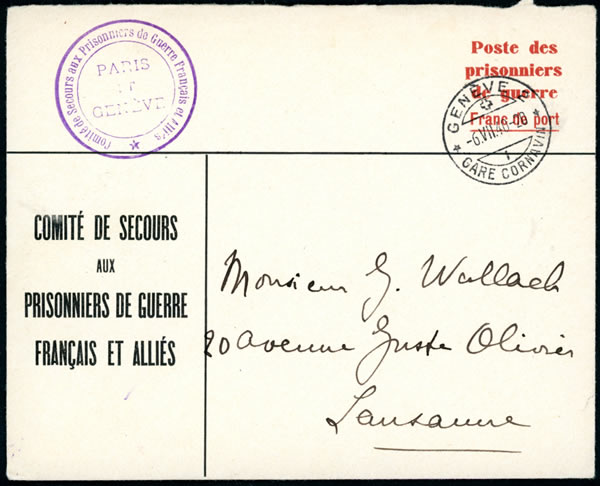 Comité de Secours aux Prisonniers de Guerre Français et Alliés
PARIS
ET
GENÈVE
Poste des
prisonniers
de guerre
Franc de port
GENÈVE 1
-6.VII.40-18
1
GARE CORNAVIN
COMITÉ DE SECOURS
AUX
PRISONNIERS DE GUERRE
FRANÇAIS ET ALLIÉS
Monsieur G. Wallach
20 avenue Juste Olivier
Lausanne